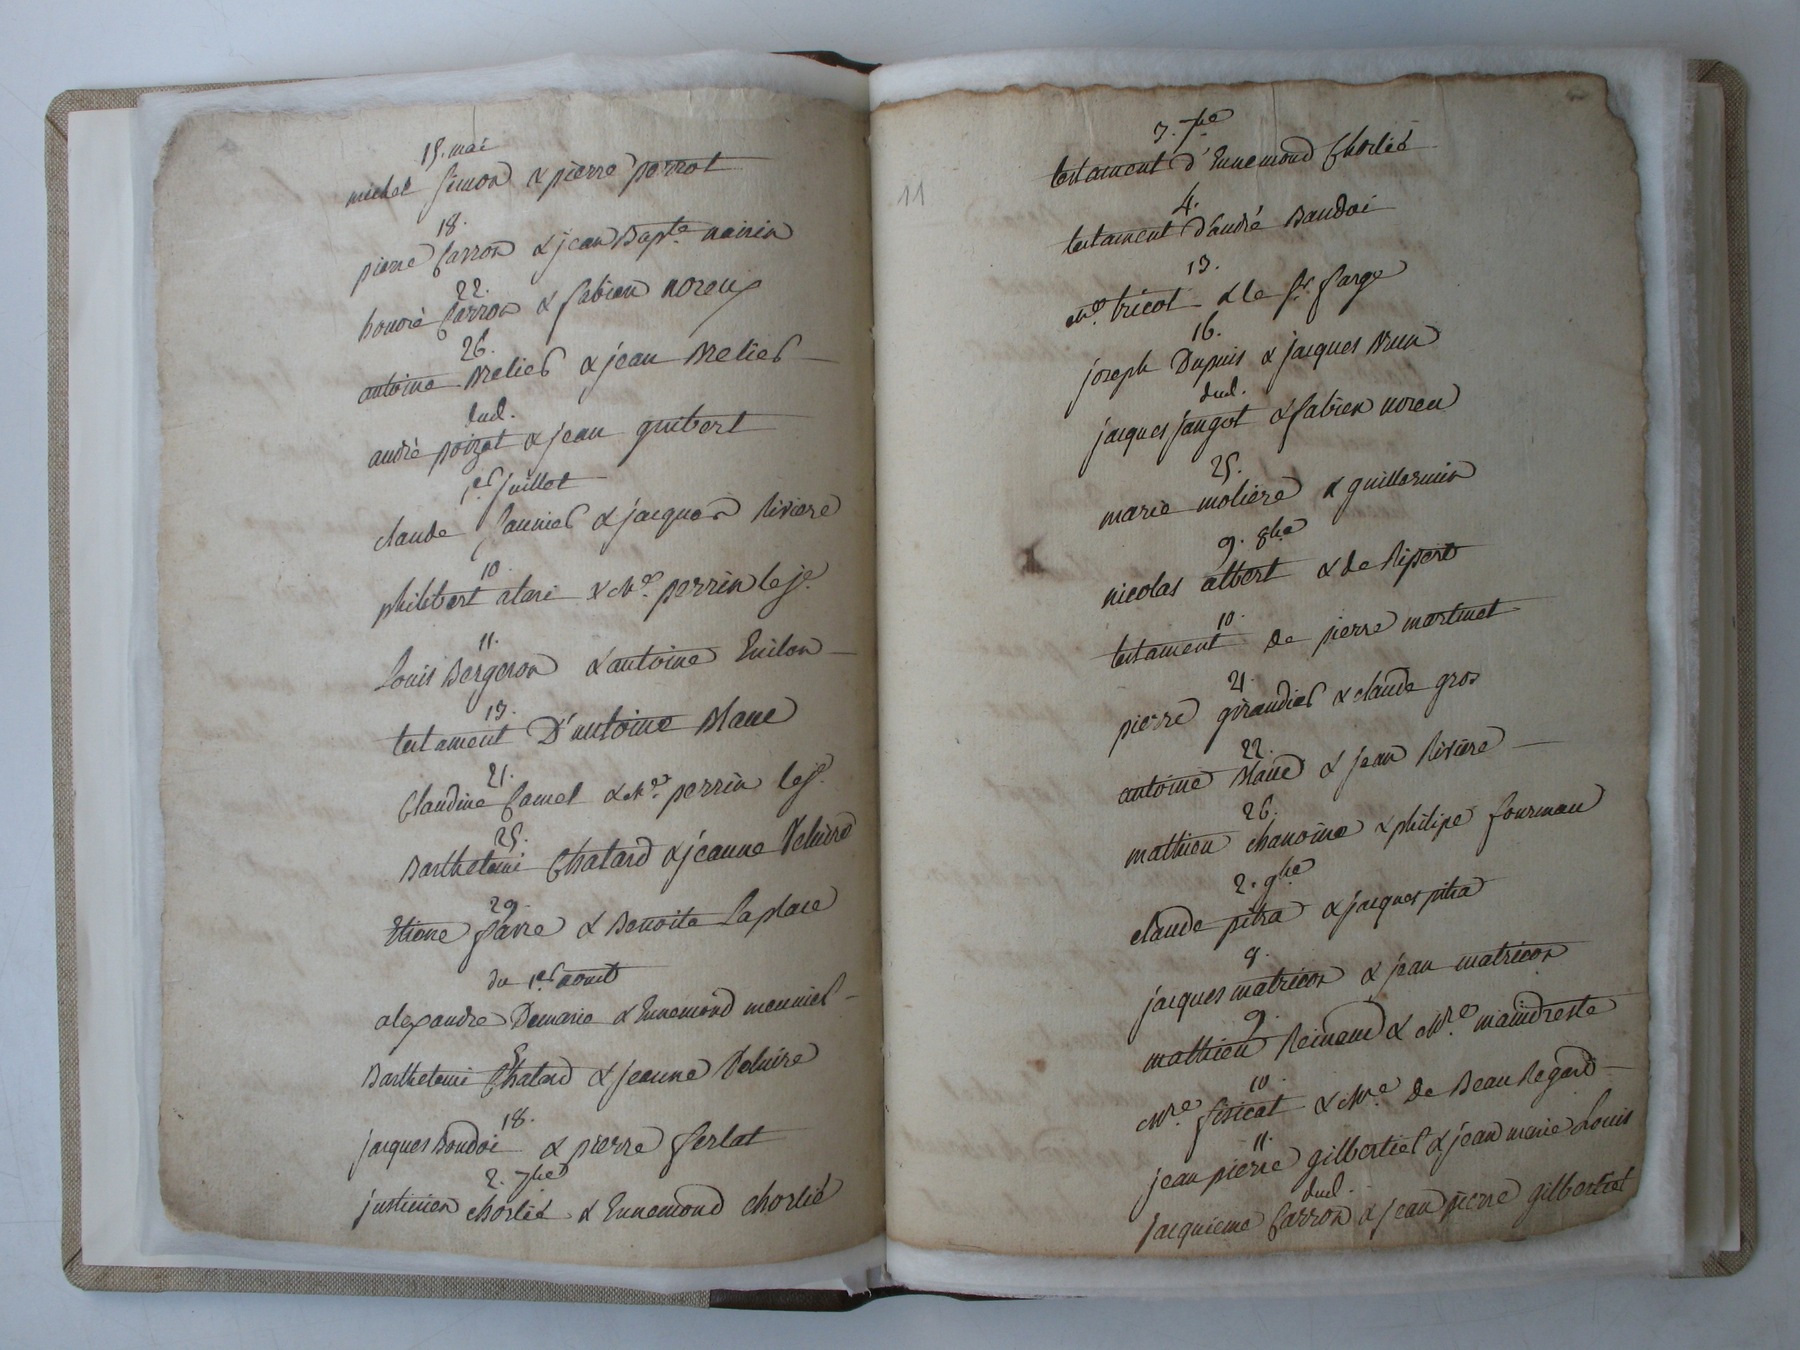 15. mai
michel Simon & pierre perrot
18.
pierre Carron & jean Bapte. nairin
22.
honoré Carron & fabien noreux
26.
antoine Melier & jean Melier
dud.
andré poizat & jean guibert
1er Juillet
claude Saunier & jacques Riviere
10.
philibert alari & Me. perrin le je.
11.
Louis Bergeron & antoine Enilon
13.
testament D'antoine Blanc
21.
Claudine Camel & Me. perrin le je.
25.
Barthelemi Chatard & jeanne
29.
Etiene favre & Benoite Laplace
du 1er aout
alexandre Demarie & Ennemond meunier
Barthelemi Chatard & jeanne
18.
jacques Baudoi & pierre ferlat
2. 7bre
justinien chorlié & Ennemond chorlié
11
3. 7bre
testament d'Ennemond Chorlié
4.
testament d'andré Baudoi
13.
Me. tricot & le sr. farge
16.
joseph Dupuis & jacques Brun
dud.
jacques jangot & fabien noreu
25.
marie moliere & guillermin
9. 8bre
nicolas albert & de Ripert
10.
testament de pierre martinet
21.
pierre giraudier & claude gros
22.
antoine Blanc & jean Riviere
26.
mathieu chanoine & philipe fourman
2. 9bre
claude pitra & jacques pitra
8.
jacques matricon & jean matricon
9.
mathieu Reinaud & Mre. maindreste
10.
Mre. fisicat & Mre. de Beau Regard
11.
jean pierre gilbertier & jean marie Louis
dud.
jacquieme Carron & jean pierre gilbertier